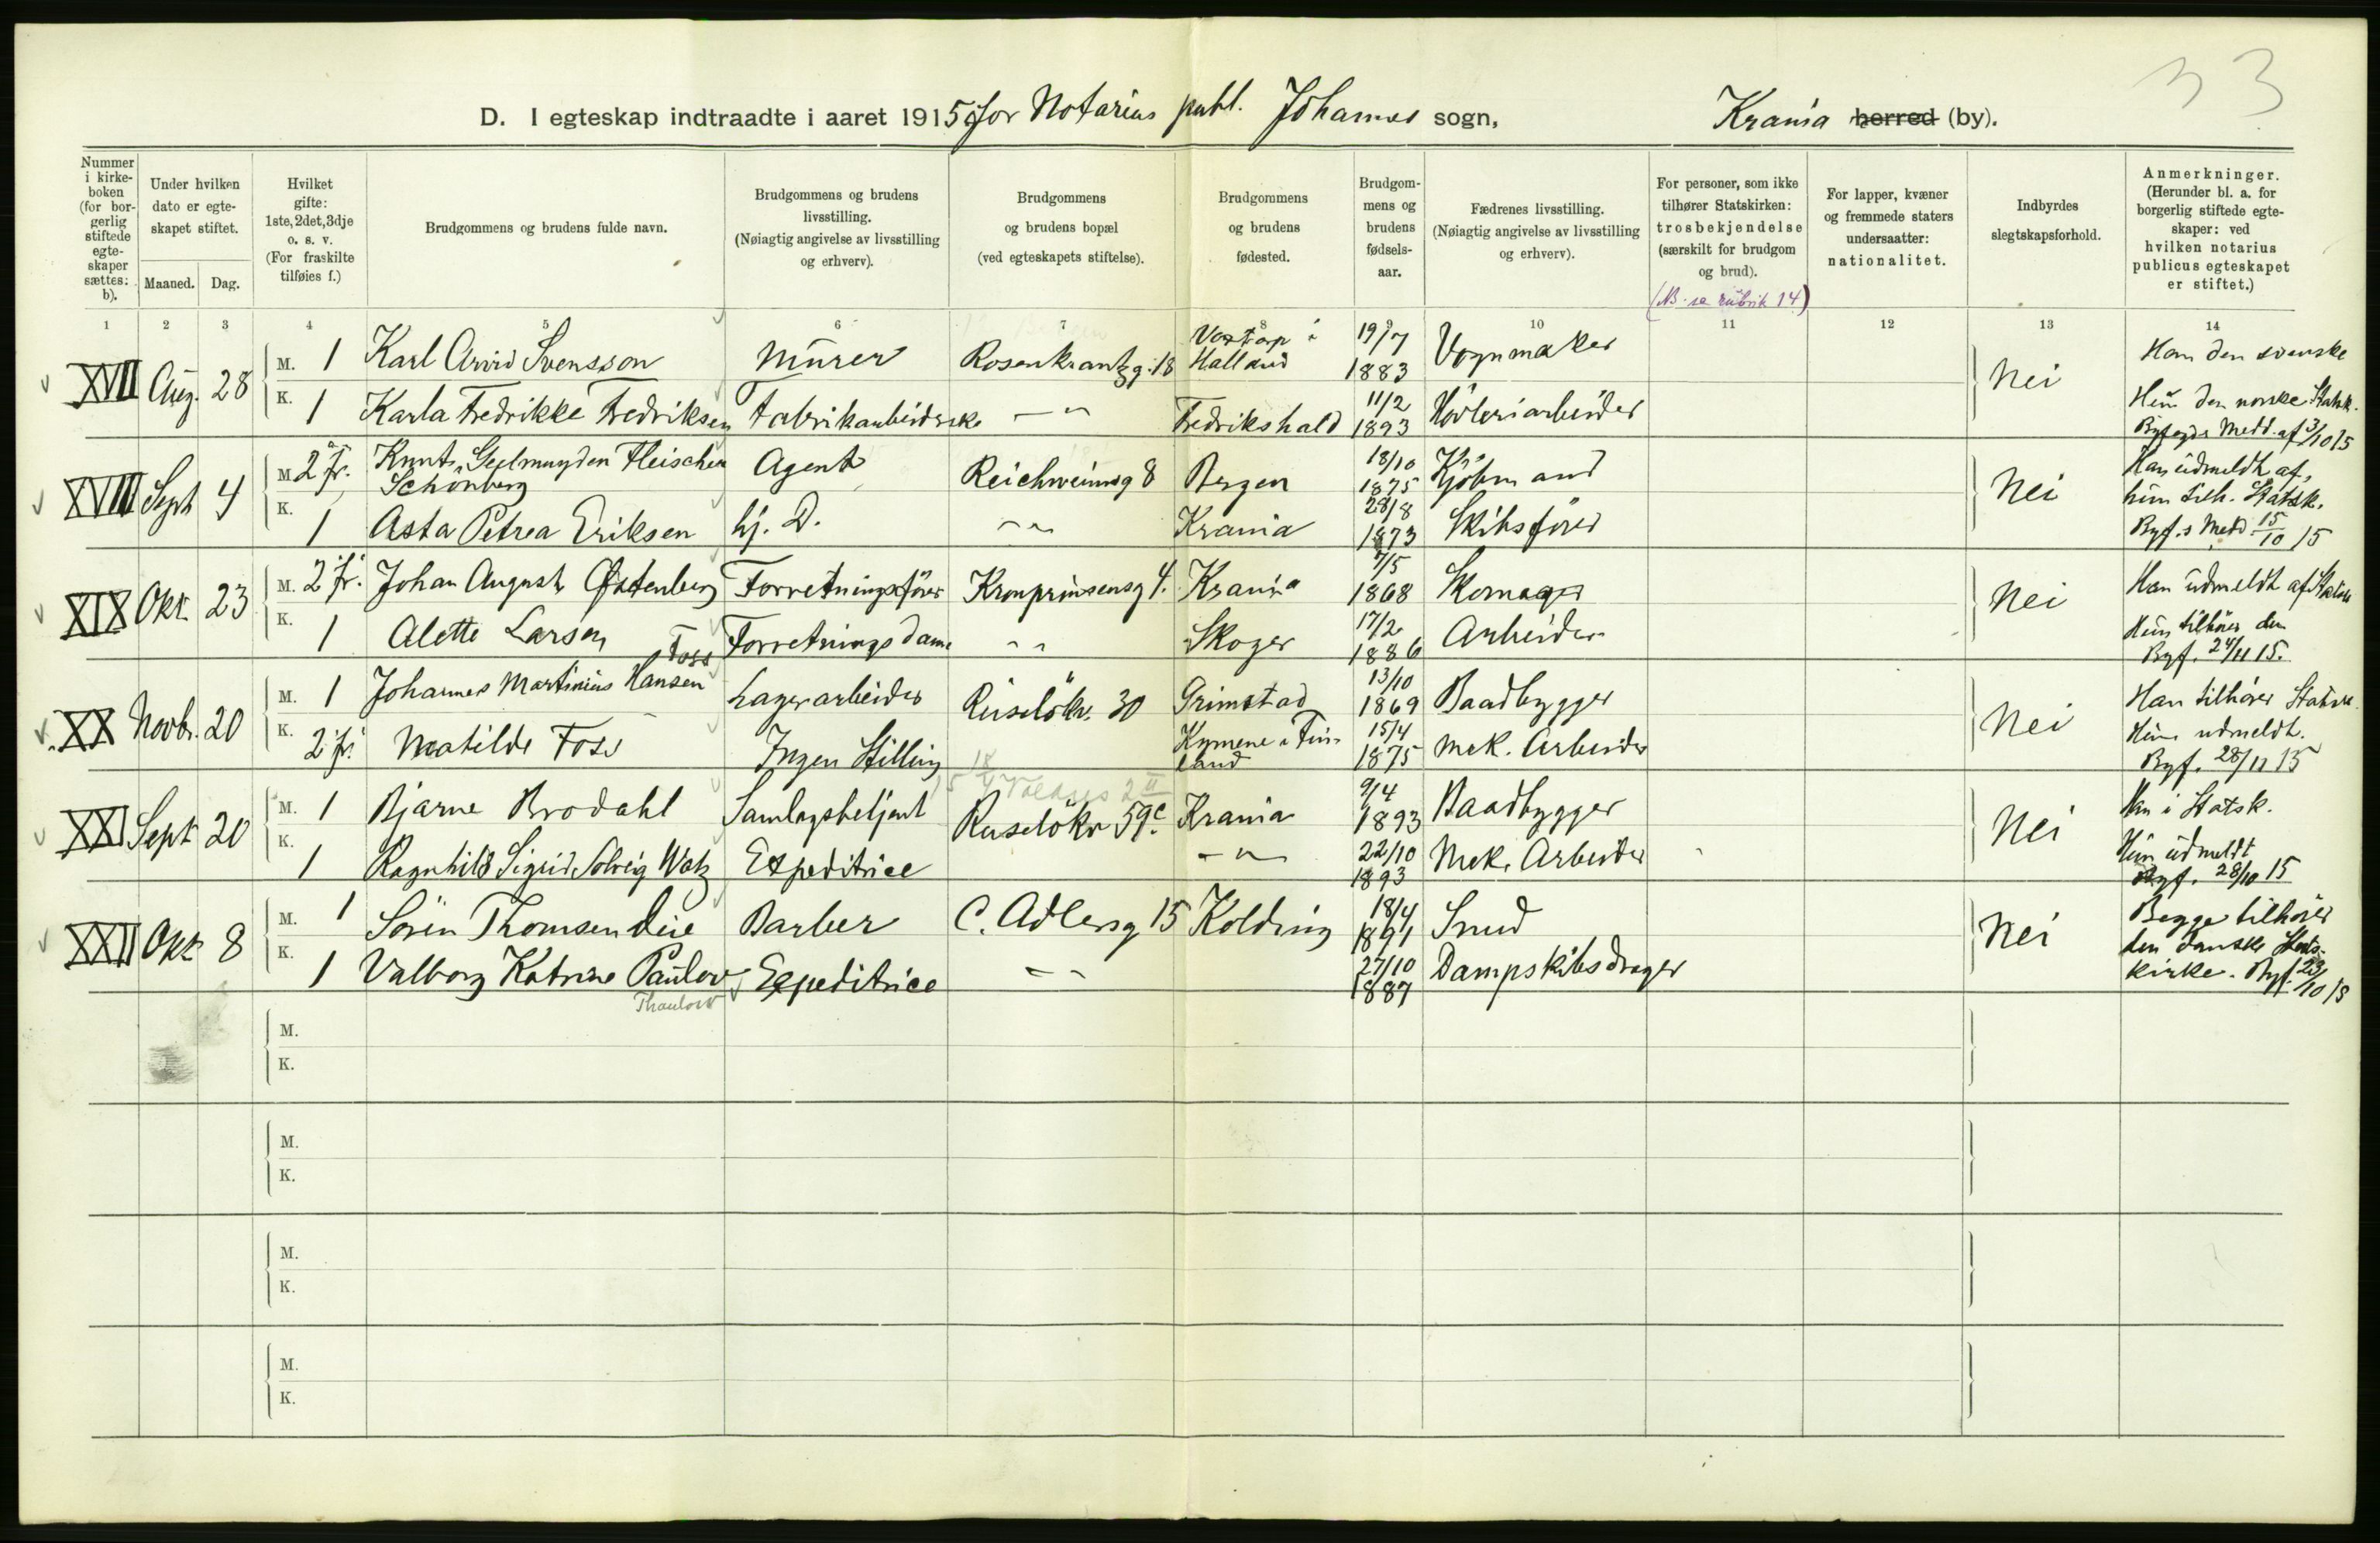 33
D. I egteskap indtraadte i aaret 1915 for Notarius publ. Johannes sogn, Krania herred (by).
Nummer i kirkeboken (for borgerlig stiftede egteskaper sættes: b).
Under hvilken dato er egteskapet stiftet.
Maaned. Dag.
Hvilket gifte: 1ste, 2det, 3dje o. s. v. (For fraskilte tilføies f.)
Brudgommens og brudens fulde navn.
Brudgommens og brudens livsstilling. (Nøiagtig angivelse av livsstilling og erhverv).
Brudgommens og brudens bopæl (ved egteskapets stiftelse).
Brudgommens og brudens fødested.
Brudgommens og brudens fødselsaar.
Fædrenes livsstilling. (Nøiagtig angivelse av livsstilling og erhverv).
For personer, som ikke tilhører Statskirken: trosbekjendelse (særskilt for brudgom og brud).
(NB. se rubrik 14)
For lapper, kvæner og fremmede staters undersaatter: nationalitet.
Indbyrdes slegtskapsforhold.
Anmerkninger. (Herunder bl. a. for borgerlig stiftede egteskaper: ved hvilken notarius publicus egteskapet er stiftet.)
1 2 3 4 5 6 7 8 9 10 11 12 13 14
XVII Aug. 28 M. 1 Karl Arvid Svensson Murer Rosenkrantzg. 18 Vastorp i Halland 19/7 1883 Vognmaker Nei Han den svenske
K. 1 Karla Fredrikke Fredriksen Fabrikarbeiderske — " Fredrikshald 11/2 1893 Høvleriarbeider Hun den norske Statsk.
Byfogds Medd. af 3/10 15
XVIII Sept 4 M. 2 fr. Knut Geelmuyden Fleischer Schönberg Agent Reichweinsg 8 Bergen 18/10 1875 Kjøbmand Nei Han udmeldt af,
K. 1 Asta Petrea Eriksen hj. D. — " Krania 28/8 1873 Skibsfører hun tilh. Statsk.
Byf.s Medd. 15/10 15
XIX Okt. 23 M. 2 fr. Johan August Østenberg Forretningsfører Kronprinsensg 4. Krania 7/5 1868 Skomager Nei Han udmeldt af Statsk
K. 1 Alette Larsen Forretningsdame " Skoger 17/2 1886 Arbeider Hun tilhører den
Byf. 24/11 15.
XX Novbr. 20 M. 1 Johannes Martinius Hansen Foss Lagerarbeider Ruseløkv. 30 Grimstad 13/10 1869 Baadbygger Nei Han tilhører Statsk.
K. 2 fr. Matilde Foss Ingen Stilling Kymene i Finland 15/4 1875 Mek. Arbeider Hun udmeldt.
Byf. 28/11 15
XXI Sept 20 M. 1 Bjarne Brodahl Samlagsbetjent Ruseløkv 59c. Krania 9/4 1893 Baadbygger Nei Han i Statsk.
K. 1 Ragnhild Sigrid Solveig Watz Expeditrice — " 22/10 1893 Mek. Arbeider Hun udmeldt
Byf. 28/10 15
XXII Okt 8 M. 1 Sørin Thomsen Lüe Barber C. Adlersg 15 Kolding 18/4 1891 Smed Nei Begge tilhører
K. 1 Valborg Katrine Paulov Expeditrice — " 27/10 1887 Dampskibsdrager den danske Stats-
Thaulow
kirke. Byf. 23/10 15
M.
K.
M.
K.
M.
K.
M.
K.